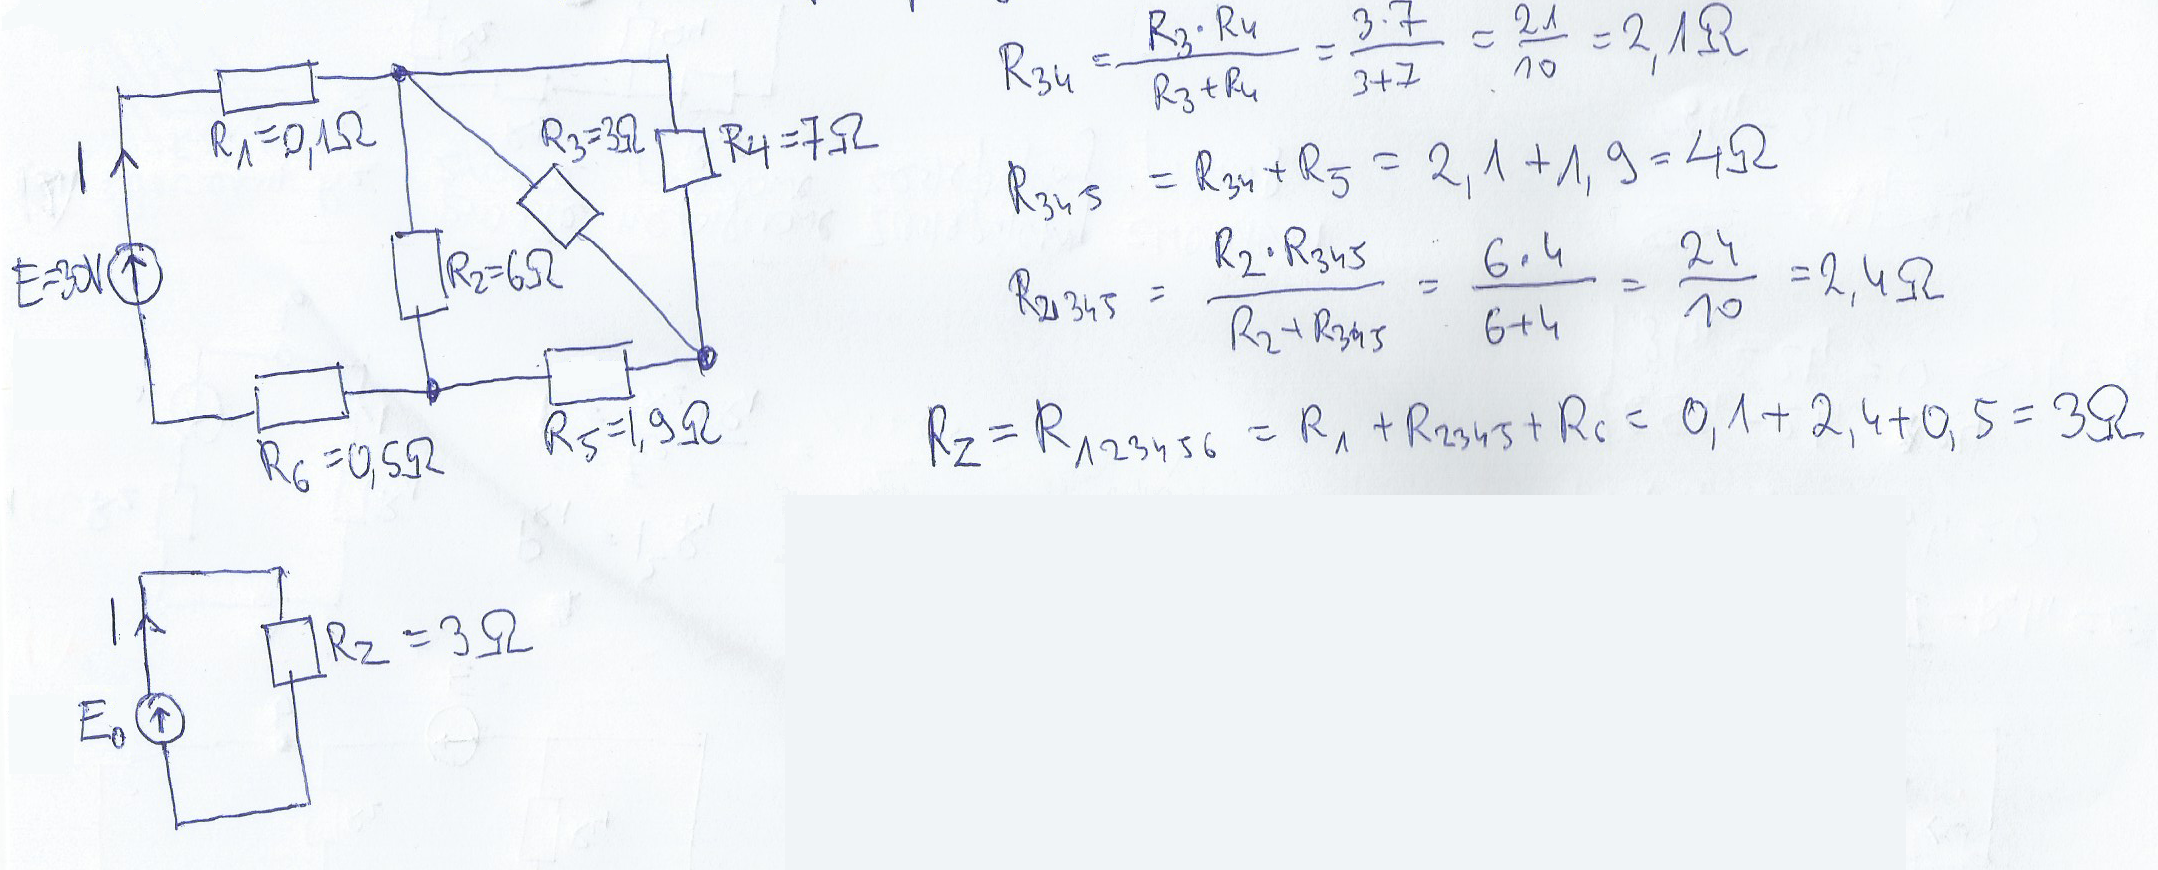 R1=0,1Ω
R3=3Ω
R4=7Ω
I
E=30V
R2=6Ω
R5=1,9Ω
R6=0,5Ω
R34 = R3·R4 / R3+R4 = 3·7 / 3+7 = 21 / 10 = 2,1Ω
R345 = R34 + R5 = 2,1 + 1,9 = 4Ω
R2345 = R2·R345 / R2+R345 = 6·4 / 6+4 = 24 / 10 = 2,4Ω
RZ = R123456 = R1 + R2345 + R6 = 0,1 + 2,4 + 0,5 = 3Ω
I
RZ = 3Ω
E0